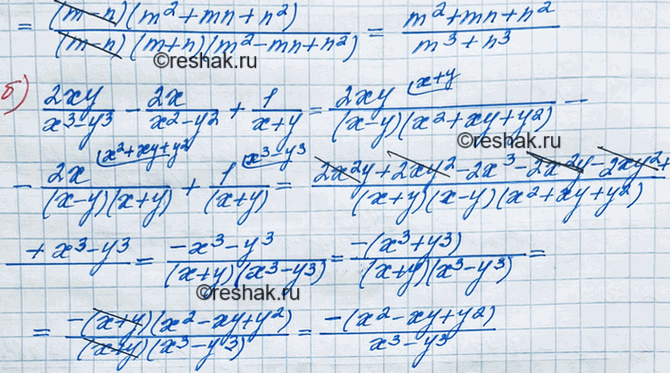 = (m-n)(m²+mn+n²) / (m-n)(m+n)(m²-mn+n²) = m²+mn+n² / m³+n³
©reshak.ru
б) 2xy / x³-y³ - 2x / x²-y² + 1 / x+y = 2xy (x+y / (x-y)(x²+xy+y²) -
- 2x (x²+xy+y² / (x-y)(x+y) + 1 (x³-y³ / (x+y) = 2x²y+2xy²-2x³-2x²y-2xy²+ / (x+y)(x-y)(x²+xy+y²)
+x³-y³ = -x³-y³ / (x+y)(x³-y³) = -(x³+y³) / (x+y)(x³-y³) =
©reshak.ru
= -(x+y)(x²-xy+y²) / (x+y)(x³-y³) = -(x²-xy+y²) / x³-y³